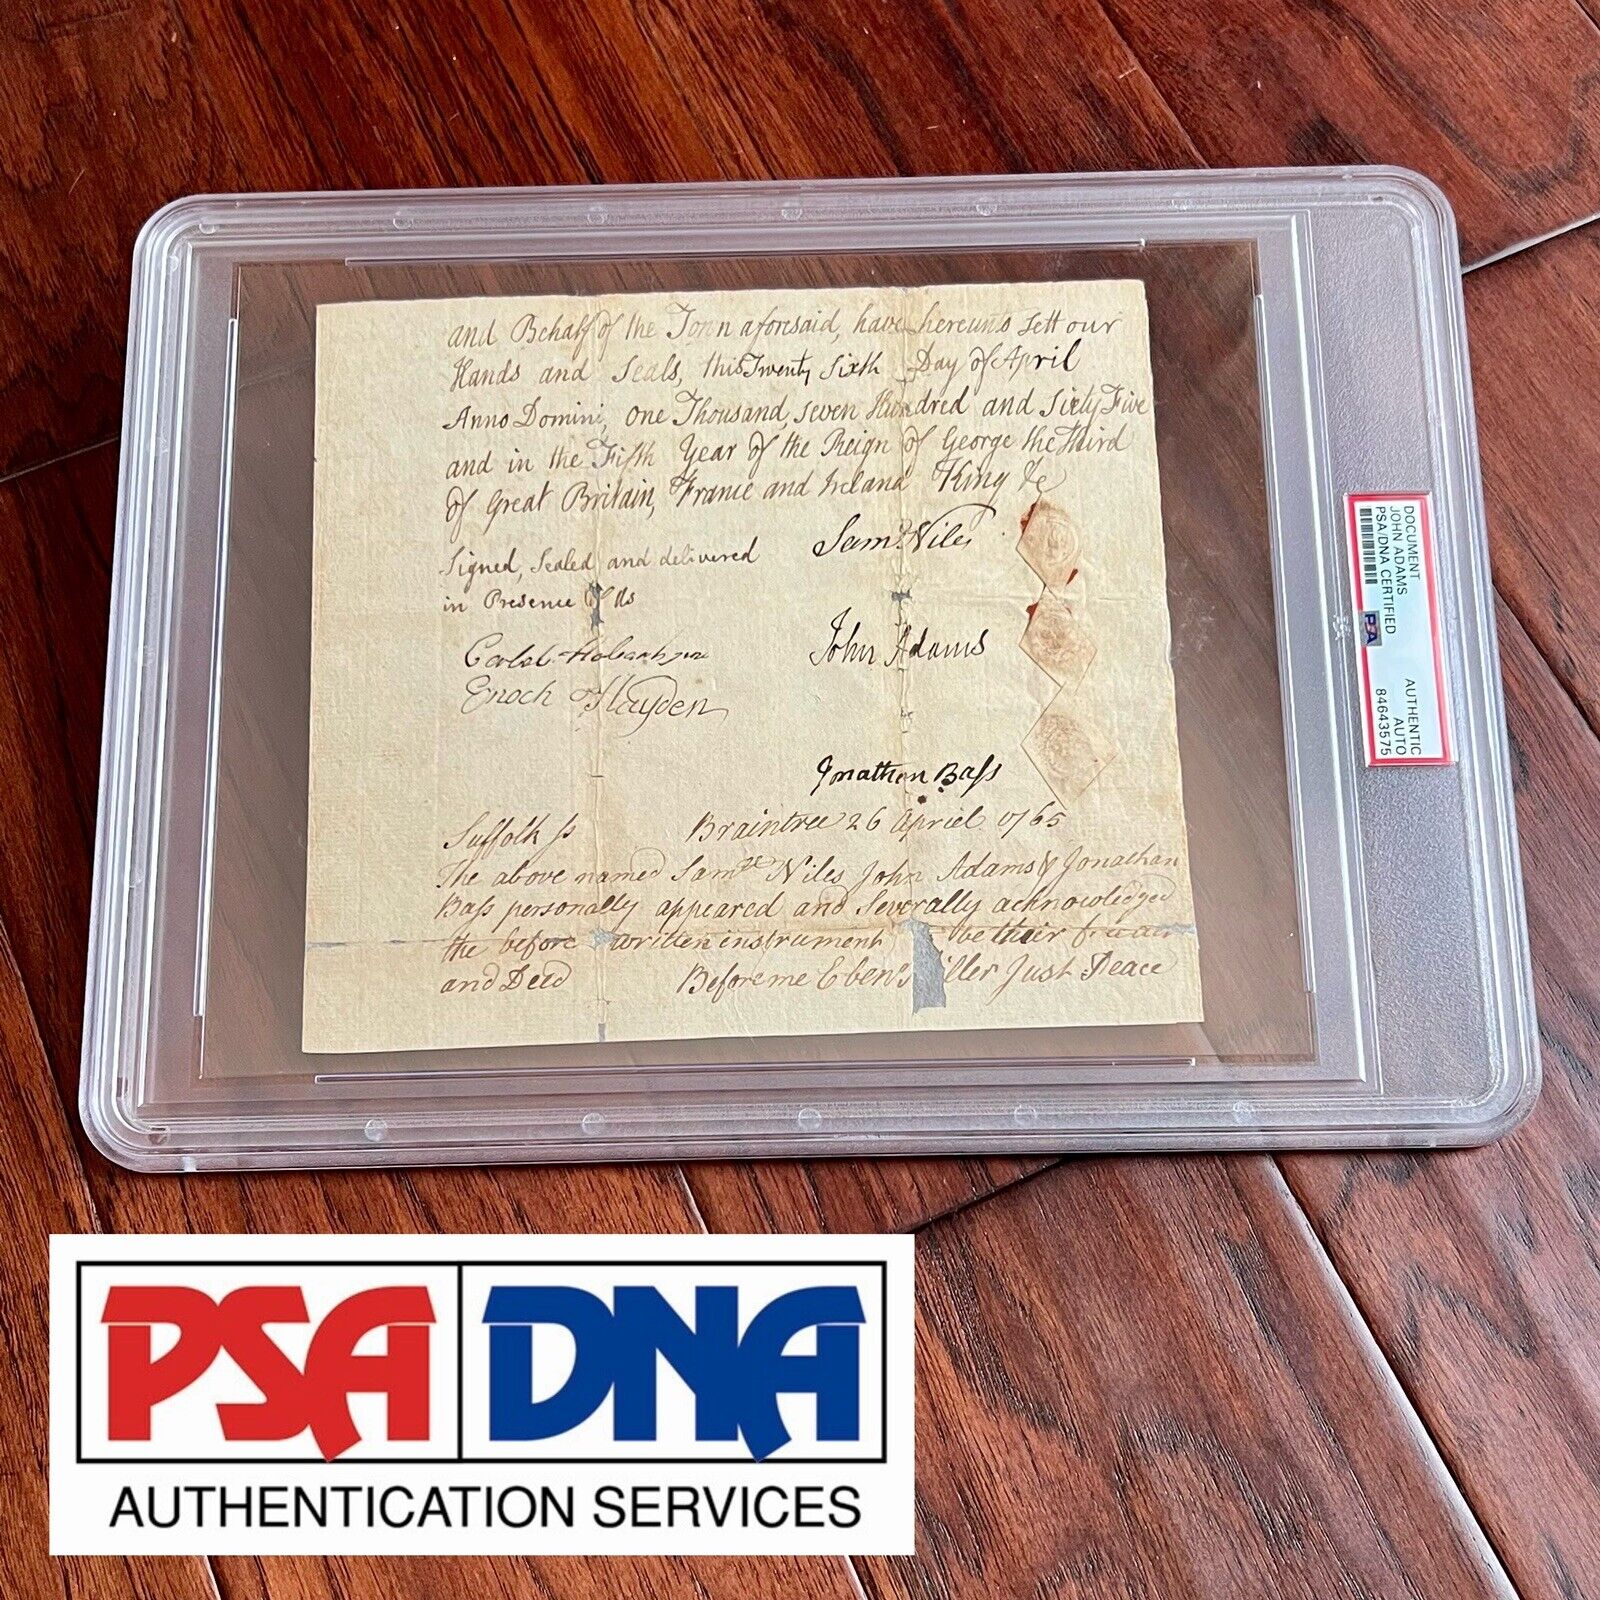 and Behalf of the Town aforesaid, have hereunto sett our
Hands and Seals, this Twenty Sixth Day of April
Anno Domini, one Thousand, seven Hundred and Sixty Five
and in the Fifth Year of the Reign of George the third
of Great Britain, France and Ireland King &c
Sam.l Niles
Signed, Sealed and delivered
in Presence of Us
John Adams
Caleb Hobart junr
Enoch Hayden
Jonathan Bass
Suffolk ss Braintree 26 April 1765
The above named Sam.ll Niles John Adams & Jonathan
Bass personally appeared and Severally acknowledged
the before written instrument be their free act
and Deed Before me Eben.r iller Just Peace
DOCUMENT
JOHN ADAMS
PSA/DNA CERTIFIED
PSA
AUTHENTIC
AUTO
84643575
PSA DNA
AUTHENTICATION SERVICES